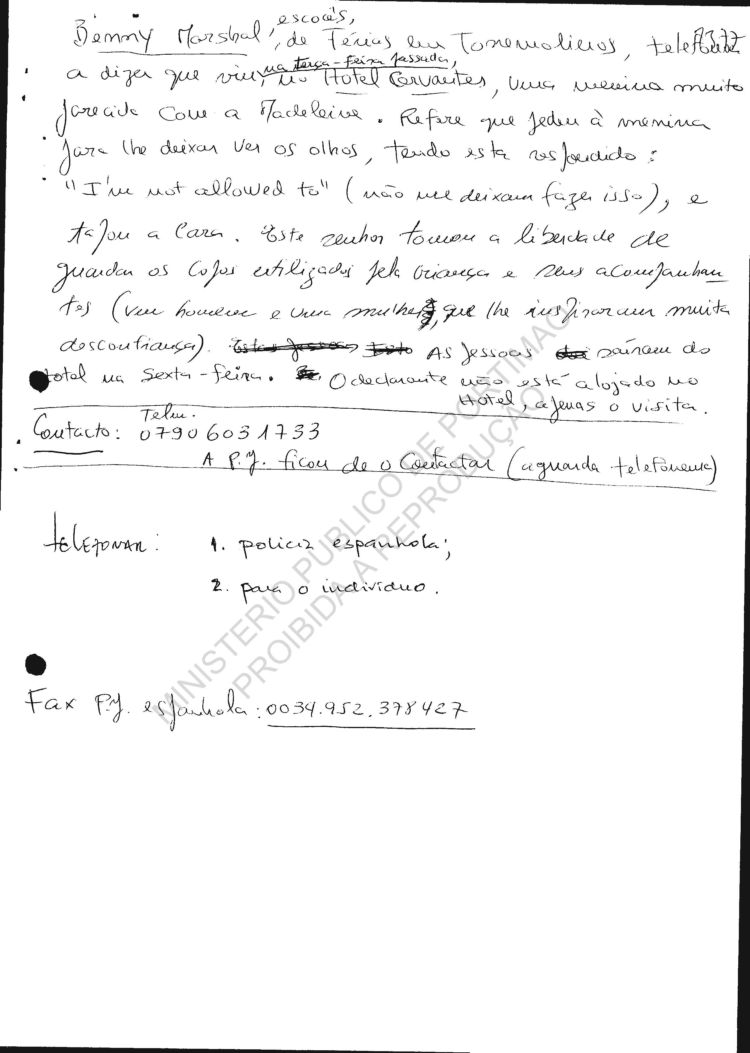 escocês,
Benny Marshal, de Férias em Torremolinos, telefonou
na terça-feira passada,
a dizer que viu, no Hotel Cervantes, uma menina muito
parecida com a Madeleine. Refere que pediu à menina
para lhe deixar ver os olhos, tendo esta respondido:
"I'm not allowed to" (não me deixam fazer isso), e
tapou a cara. Este senhor tomou a liberdade de
guardar os copos utilizados pela criança e seus acompanhan
tes (um homem e uma mulher, que lhe inspiraram muita
desconfiança). As pessoas saíram do
Hotel na Sexta-feira. O declarante não está alojado no
Hotel, apenas o visita.
Telm.
Contacto: 07906031733
A P.J. ficou de o Contactar (aguarda telefonema)
telefonar: 1. policia espanhola;
2. para o individuo.
Fax P.J. espanhola: 0034.952.378427
MINISTERIO PUBLICO DE PORTIMAO
PROIBIDA A REPRODUÇÃO